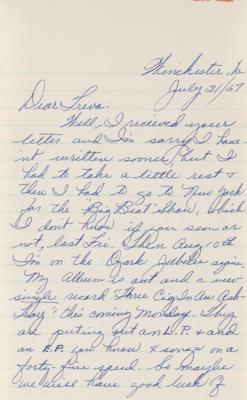 Winchester, Va
July 31/57
Dear Treva:
Well, I recieved your
letter and I'm sorry I have
n't written sooner, but I
had to take a little rest &
then I had to go to New York
for the "Big Beat" Show, which
I don't know if you seen or
not, last Fri. Then Aug 10th
I'm on the Ozark Jubilee again.
My Album is out and a new
single record "Three Cig In An Ash-
tray" this coming Monday. They
are putting out an L.P. & and
an E.P. you know 4 songs on a
forty-five speed. So maybe
we will have good luck if